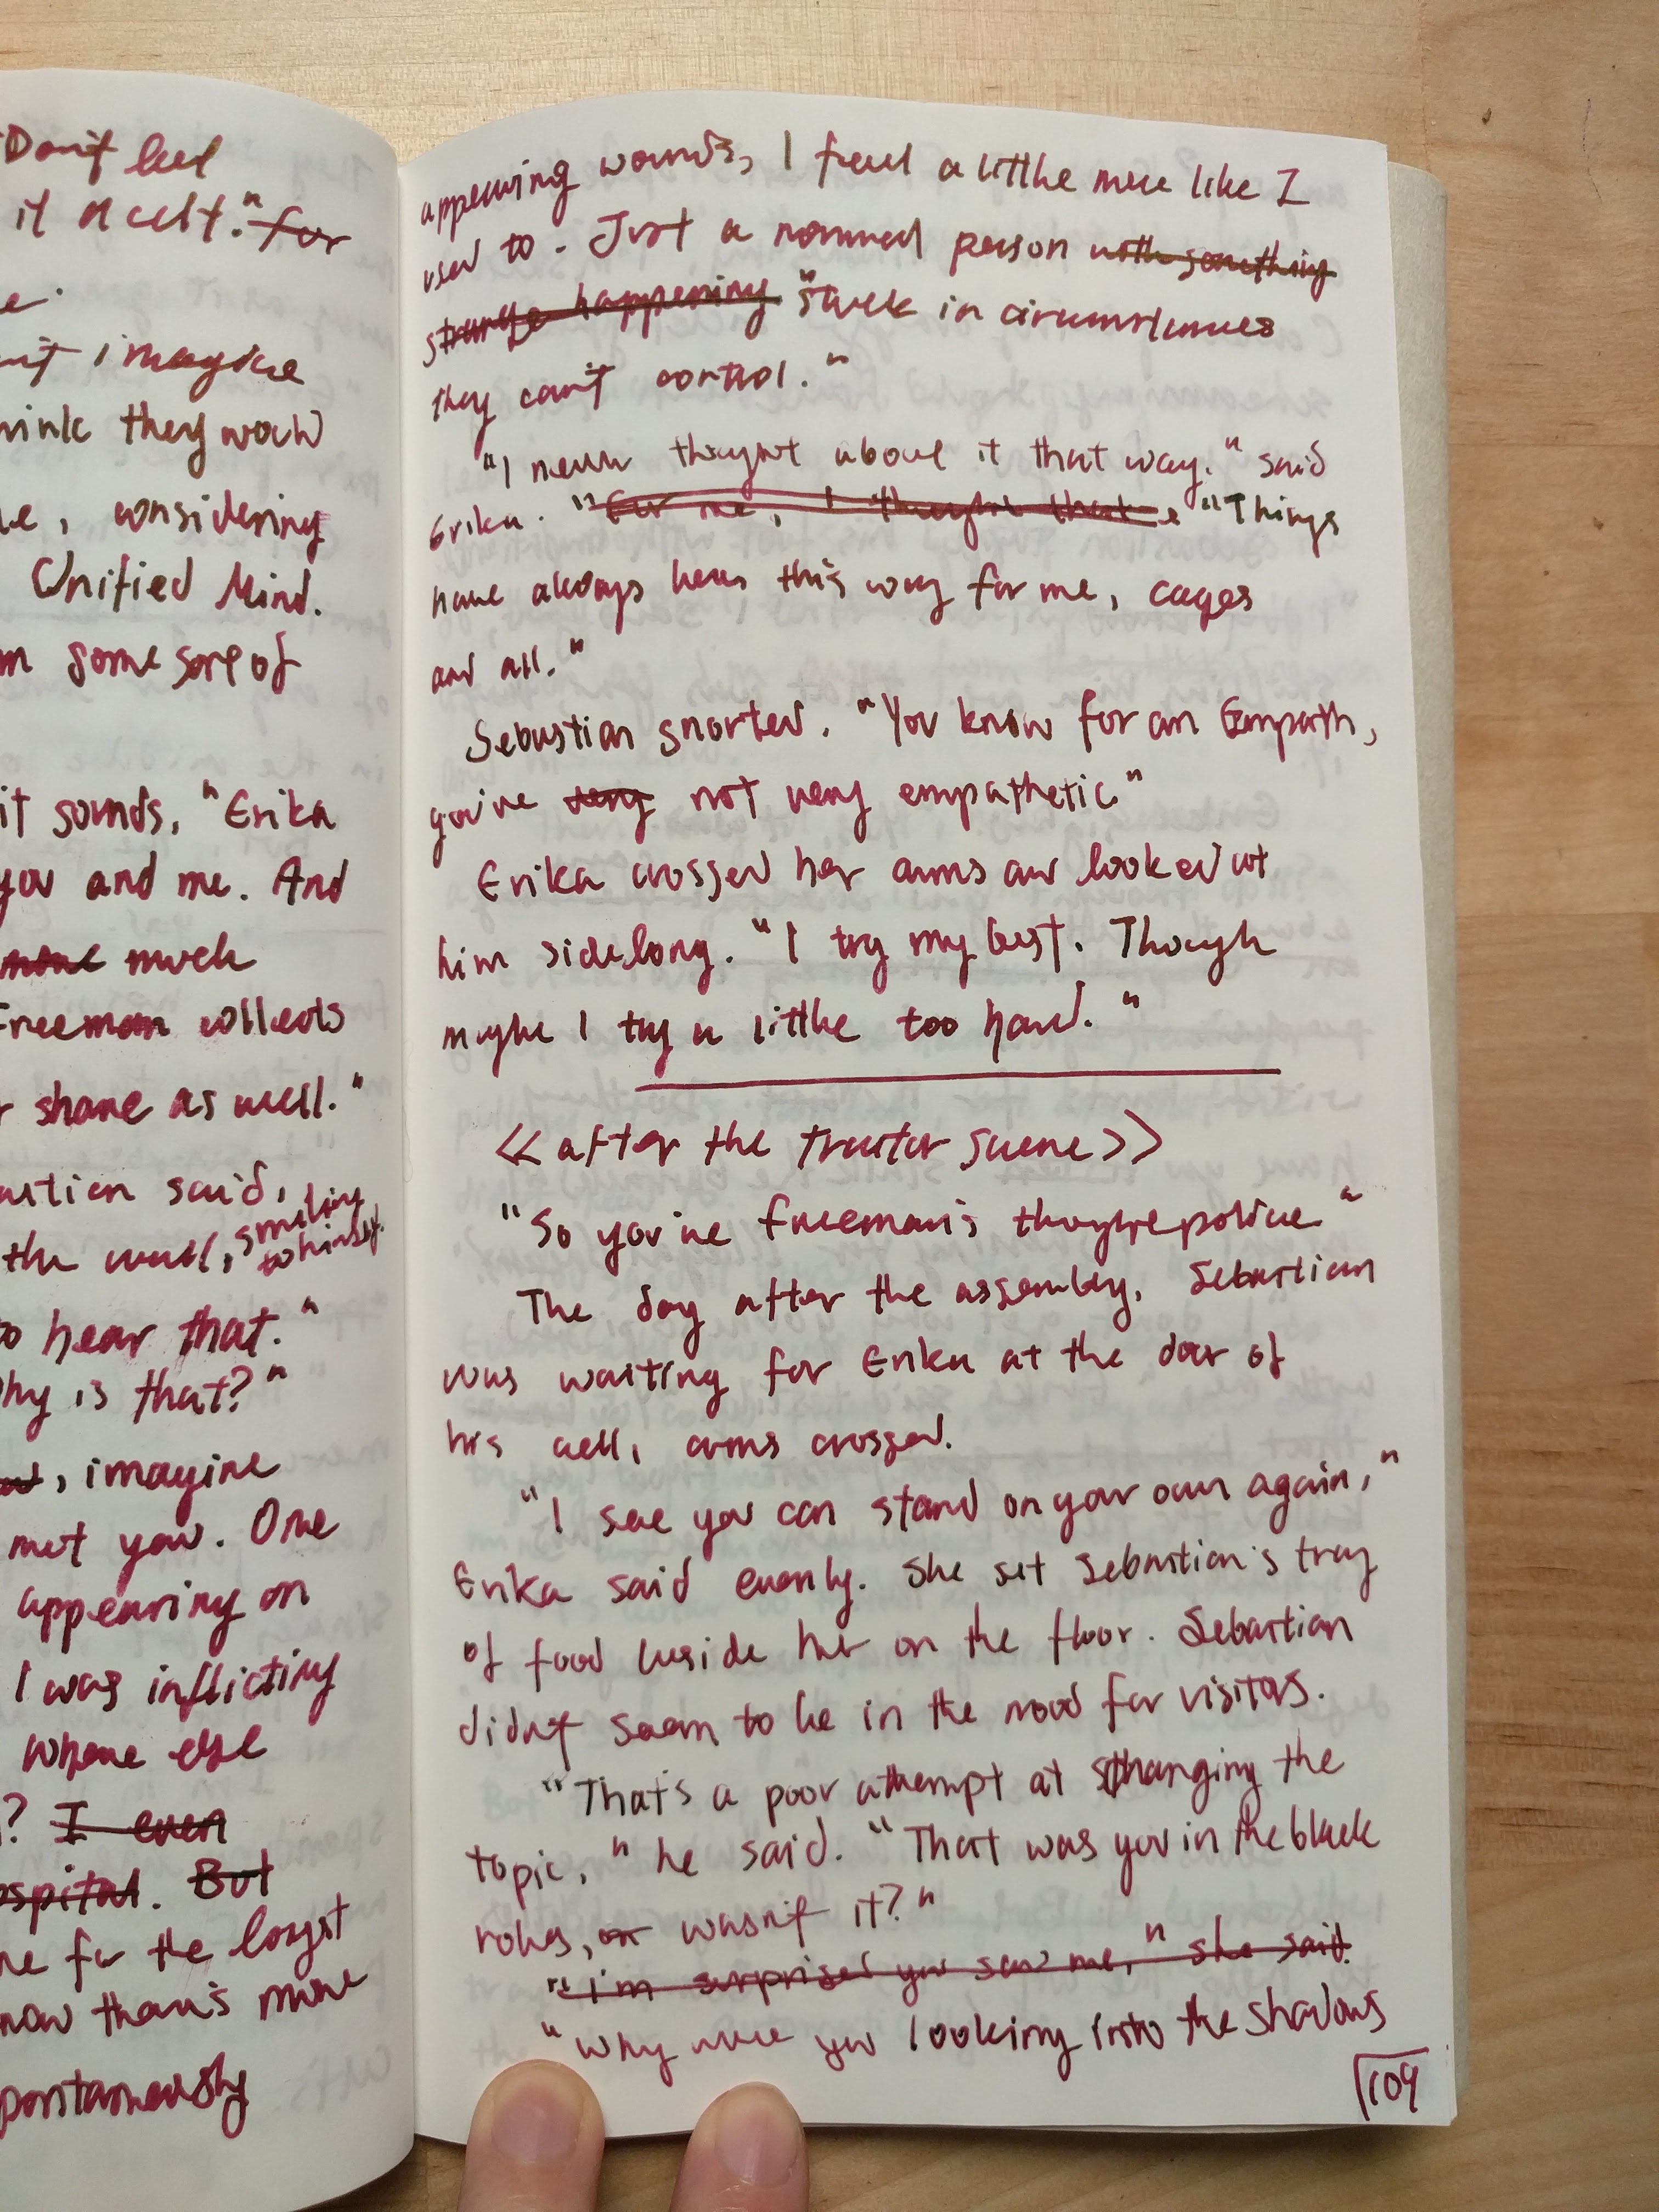 Don't feel
it a cult." for
e.
't imagine
think they would
le, considering
Unified Mind.
some sort of
it sounds, "Erika
you and me. And
more much
Freeman collects
share as well."
astian said,
the wall, smiling to himself.
to hear that."
hy is that?"
, imagine
met you. One
appearing on
I was inflicting
where else
? I even
ospital. But
ne for the longest
now there's more
pontaneously
appearing wounds, I feel a little more like I
used to. Just a normal person with something
strange happening "stuck in circumstances
they can't control."
"I never thought about it that way." said
Erika. "For me, I thought that "Things
have always been this way for me, cages
and all."
Sebastian snorted. "You know for an Empath,
you're very not very empathetic."
Erika crossed her arms and looked at
him sidelong. "I try my best. Though
maybe I try a little too hard."
<<after the traitor scene>>
"So you're Freeman's thought police"
The day after the assembly, Sebastian
was waiting for Erika at the door of
his cell, arms crossed.
"I see you can stand on your own again,"
Erika said evenly. She set Sebastian's tray
of food beside her on the floor. Sebastian
didn't seem to be in the mood for visitors.
"That's a poor attempt at changing the
topic," he said. "That was you in the black
robes, or wasn't it?"
"I'm surprised you saw me," she said.
"Why were you looking into the shadows
109